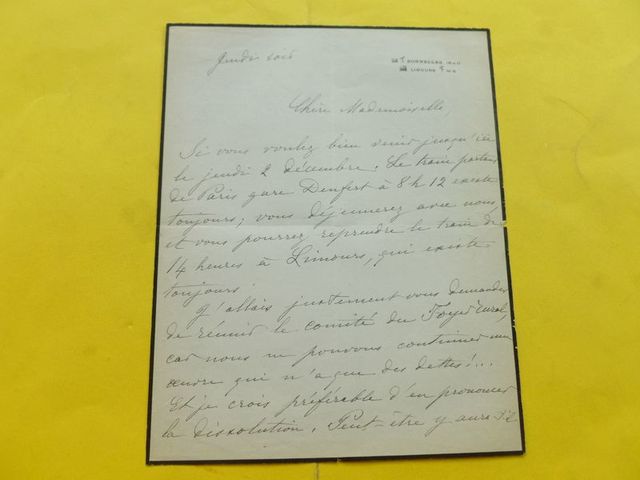 Jeudi soir
LIMOURS
Chère Mademoiselle,
Si vous voulez bien venir jusqu'ici
le jeudi 2 décembre. Le train partant
de Paris gare Denfert à 8h 12 existe
toujours; vous déjeunerez avec nous
et vous pourrez reprendre le train de
14 heures à Limours, qui existe
toujours!
J'allais justement vous demander
de réunir le comité du Foyer rural,
car nous ne pouvons continuer une
œuvre qui n'a que des dettes!...
Et je crois préférable d'en prononcer
la dissolution. Peut-être y aura-t-il